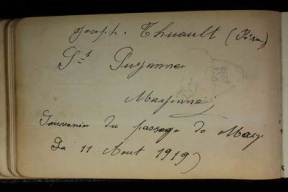 Joseph. Thuault (Rem)
St Suzanne
Mayenne
Souvenir du passage de Mary
Le 11 Aout 1919